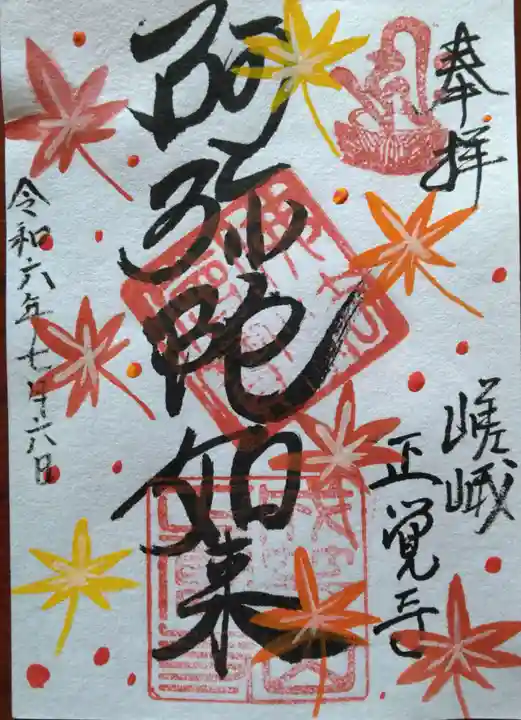 奉拝
嵯峨
正覚寺
阿弥陀如来
令和六年七月六日